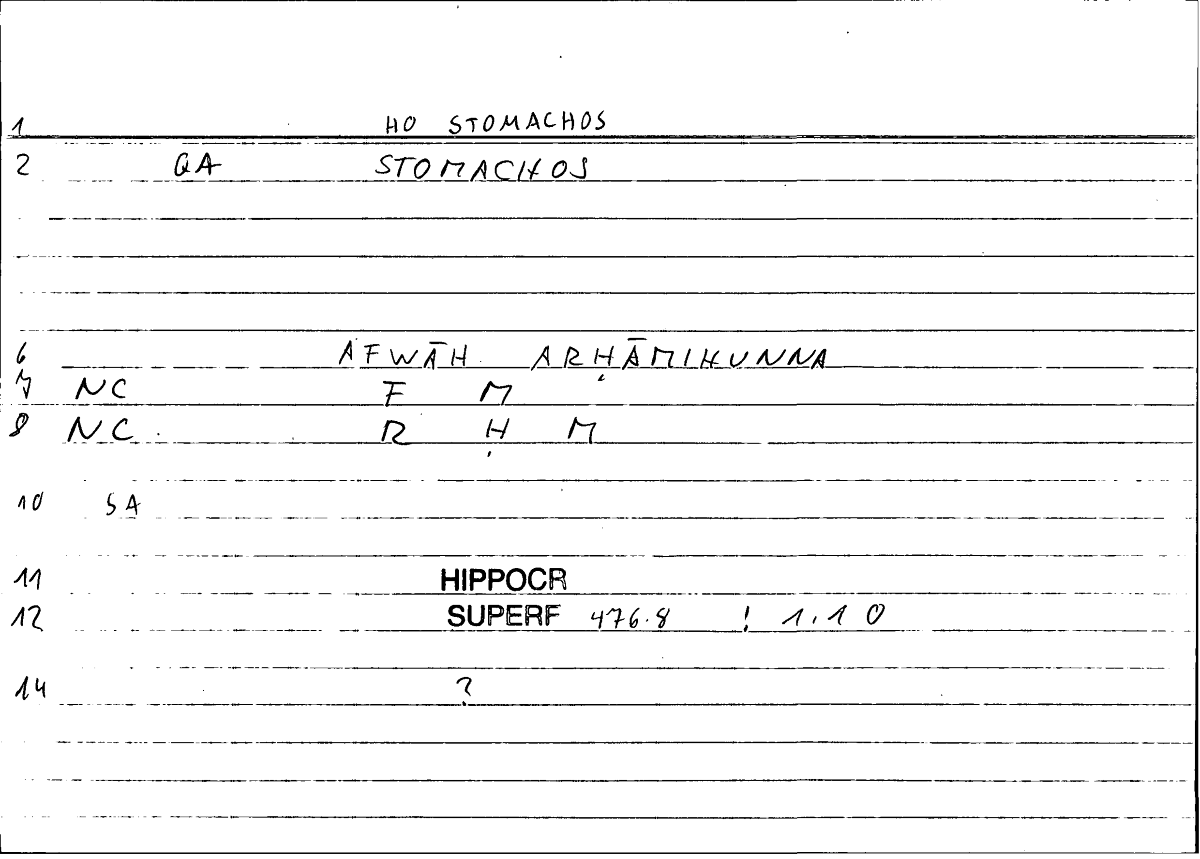 1 HO STOMACHOS
2 QA STOMACHOS
6 AFWĀH ARḤĀMIHUNNA
7 NC F M
8 NC R Ḥ M
10 SA
11 HIPPOCR
12 SUPERF 476.8 ! 1.10
14 ?